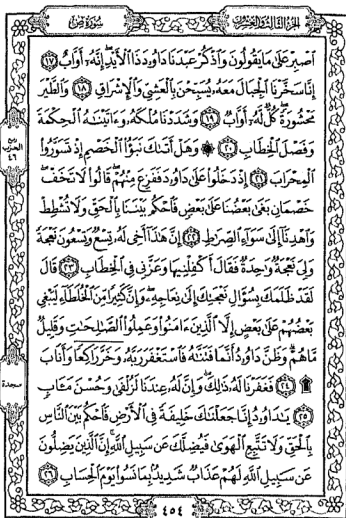 الجزء الثالث والعشرون
سورة ص
ٱصْبِرْ عَلَىٰ مَا يَقُولُونَ وَٱذْكُرْ عَبْدَنَا دَاوُۥدَ ذَا ٱلْأَيْدِ ۖ إِنَّهُۥٓ أَوَّابٌ ١٧
إِنَّا سَخَّرْنَا ٱلْجِبَالَ مَعَهُۥ يُسَبِّحْنَ بِٱلْعَشِىِّ وَٱلْإِشْرَاقِ ١٨ وَٱلطَّيْرَ
مَحْشُورَةً ۖ كُلٌّ لَّهُۥٓ أَوَّابٌ ١٩ وَشَدَدْنَا مُلْكَهُۥ وَءَاتَيْنَٰهُ ٱلْحِكْمَةَ
وَفَصْلَ ٱلْخِطَابِ ٢٠ ۞ وَهَلْ أَتَىٰكَ نَبَؤُا۟ ٱلْخَصْمِ إِذْ تَسَوَّرُوا۟
ٱلْمِحْرَابَ ٢١ إِذْ دَخَلُوا۟ عَلَىٰ دَاوُۥدَ فَفَزِعَ مِنْهُمْ ۖ قَالُوا۟ لَا تَخَفْ ۖ
خَصْمَانِ بَغَىٰ بَعْضُنَا عَلَىٰ بَعْضٍ فَٱحْكُم بَيْنَنَا بِٱلْحَقِّ وَلَا تُشْطِطْ
وَٱهْدِنَآ إِلَىٰ سَوَآءِ ٱلصِّرَٰطِ ٢٢ إِنَّ هَٰذَآ أَخِى لَهُۥ تِسْعٌ وَتِسْعُونَ نَعْجَةً
وَلِىَ نَعْجَةٌ وَٰحِدَةٌ فَقَالَ أَكْفِلْنِيهَا وَعَزَّنِى فِى ٱلْخِطَابِ ٢٣ قَالَ
لَقَدْ ظَلَمَكَ بِسُؤَالِ نَعْجَتِكَ إِلَىٰ نِعَاجِهِۦ ۖ وَإِنَّ كَثِيرًا مِّنَ ٱلْخُلَطَآءِ لَيَبْغِى
بَعْضُهُمْ عَلَىٰ بَعْضٍ إِلَّا ٱلَّذِينَ ءَامَنُوا۟ وَعَمِلُوا۟ ٱلصَّٰلِحَٰتِ وَقَلِيلٌ
مَّا هُمْ ۗ وَظَنَّ دَاوُۥدُ أَنَّمَا فَتَنَّٰهُ فَٱسْتَغْفَرَ رَبَّهُۥ وَخَرَّ رَاكِعًا وَأَنَابَ
۩ ٢٤ فَغَفَرْنَا لَهُۥ ذَٰلِكَ ۖ وَإِنَّ لَهُۥ عِندَنَا لَزُلْفَىٰ وَحُسْنَ مَـَٔابٍ
٢٥ يَٰدَاوُۥدُ إِنَّا جَعَلْنَٰكَ خَلِيفَةً فِى ٱلْأَرْضِ فَٱحْكُم بَيْنَ ٱلنَّاسِ
بِٱلْحَقِّ وَلَا تَتَّبِعِ ٱلْهَوَىٰ فَيُضِلَّكَ عَن سَبِيلِ ٱللَّهِ ۚ إِنَّ ٱلَّذِينَ يَضِلُّونَ
عَن سَبِيلِ ٱللَّهِ لَهُمْ عَذَابٌ شَدِيدٌۢ بِمَا نَسُوا۟ يَوْمَ ٱلْحِسَابِ ٢٦
الحزب
٤٦
سجدة
٤٥٤